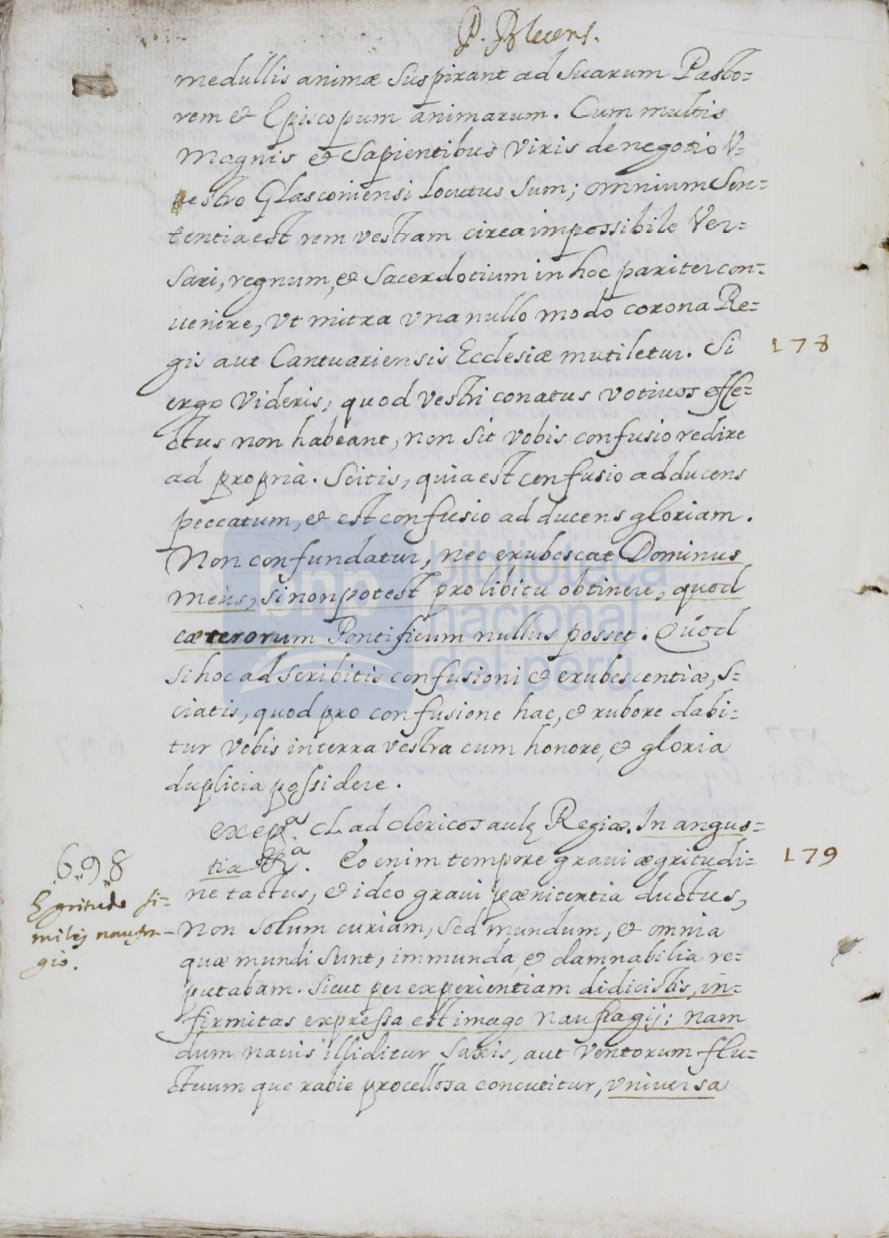 P. Blesens.
medullis animæ suspirant ad suarum Pasto-
rem et Episcopum animarum. Cum multis
Magnis et Sapientibus Viris de negotio V-
estro Glasconiensi locutus sum; omnium Sen-
tentia est rem vestram circa impossibile Ver-
sari, regnum, et Sacerdotium in hoc pariter con-
uenire, Vt mitra vna nullo modo corona Re-
gis aut Cantuariensis Ecclesiæ mutiletur. Si
178
ergo Videris, quod vestri conatus votiuos effe-
ctus non habeant, non sit vobis confusio redire
ad propria. Scitis, quia est confusio adducens
peccatum, et est confusio adducens gloriam.
Non confundatur, nec erubescat Dominus
meus, si non potest pro libitu obtinere, quod
cæterorum Pontificum nullus posset. Quod
si hoc adscribitis confusioni et erubescentiæ, s-
ciatis, quod pro confusione hac, et rubore dabi-
tur vobis in terra vestra cum honore, et gloria
duplicia possidere.
ex epª. CL. ad clericos aulę Regiæ. In angus-
tia &ª. Eo enim tempore graui ægritudi-
179
698
Egritudo si-
milis naufra-
gio.
ne tactus, et ideo graui pænitentia ductus,
non solum curiam, sed mundum, et omnia
quæ mundi sunt, immunda, et damnabilia re-
putabam. Sicut per experientiam didicistis, in-
firmitas expressa est imago naufragij: nam
dum nauis illiditur saxis, aut ventorum flu-
ctuum que rabie procellosa concutitur, vniuersa
bnp biblioteca
nacional
del perú